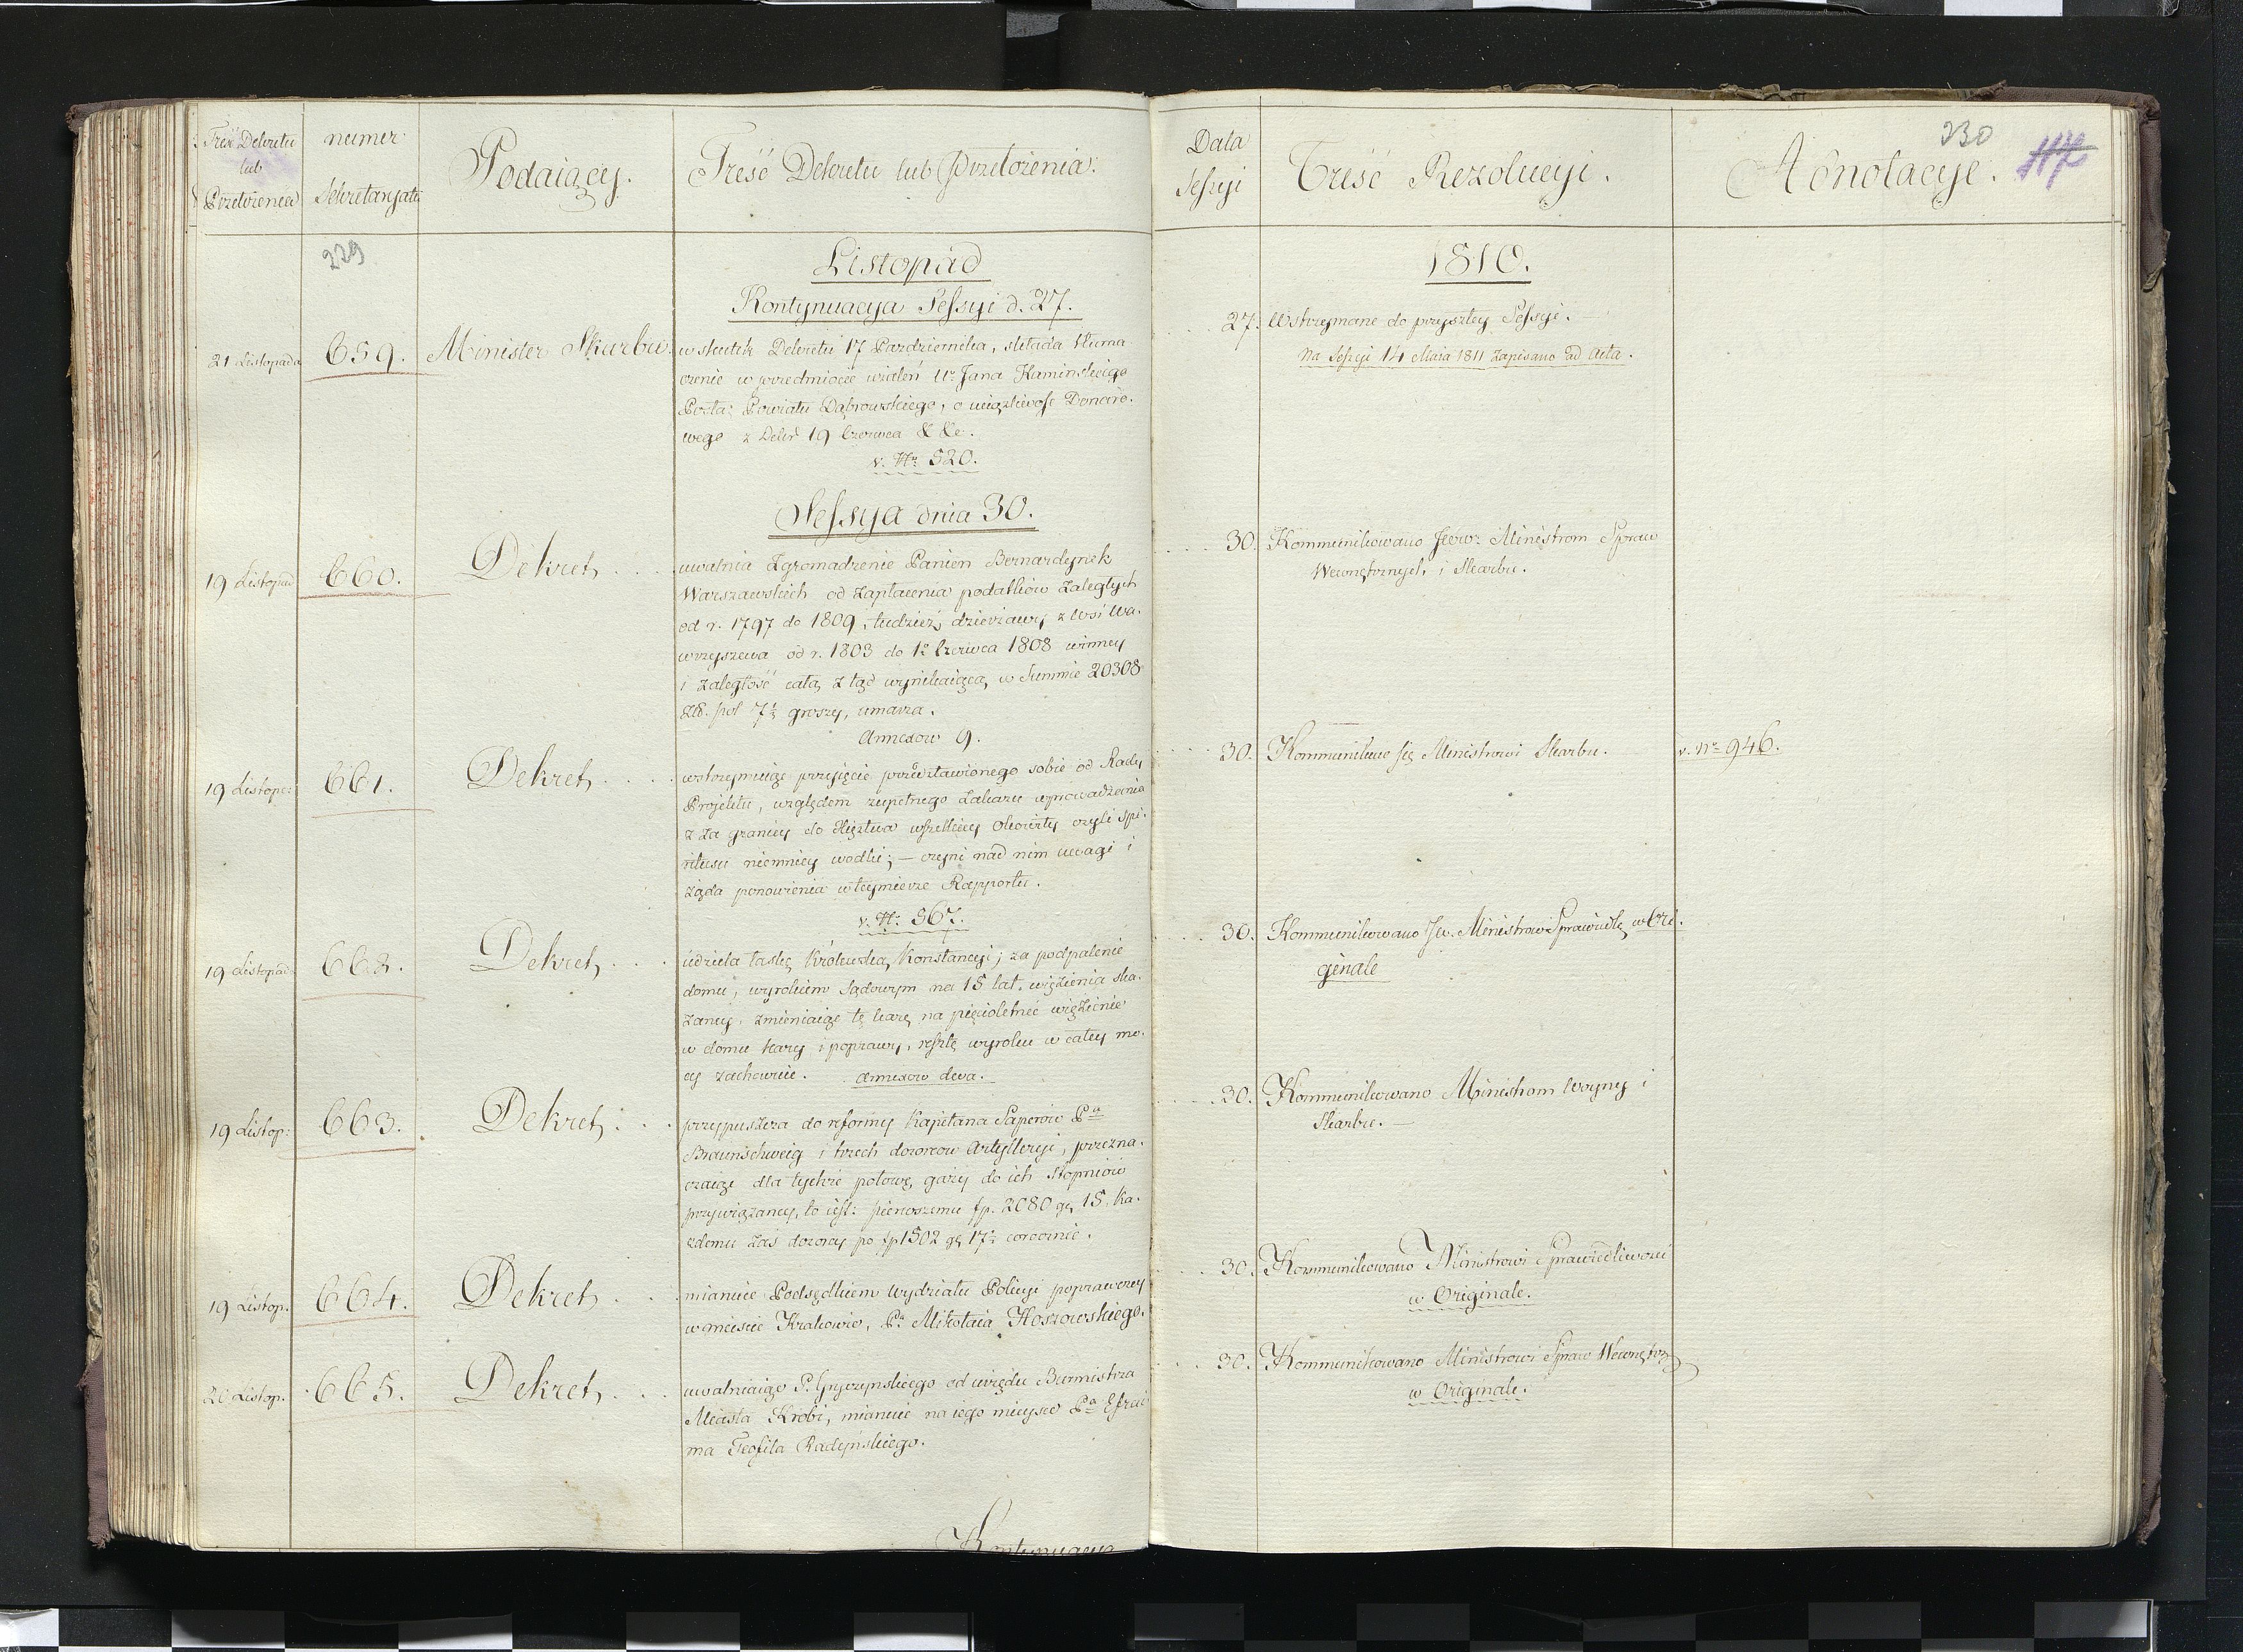 Treść Dekretu
lub
Przełożenia
numer
Sekretaryatu
Podaiący.
Treść Dekretu lub Przełożenia.
Data
Sessyi
Treść Rezolucyi.
Adnotacye.
230
117
229
Listopad
1810.
Kontynuacya Sessyi d. 27.
21 Listopada
659.
Minister Skarbu.
w skutek Dekretu 17 Pazdziernika, składa tłuma
czenie w przedmiocie zażaleń Ur Jana Kaminskiego
Posła Powiatu Dąbrowskiego, o uciążliwość Donaro.
wego z Dekr 19 Czerwca &c.
v. Nr 520.
27. Wstrzymane do przyszłey Sessyi.
Na Sessyi 14 Maia 1811 zapisano ad acta.
Sessya dnia 30.
19 Listopad
660.
Dekret
uwalnia Zgromadzenie Panien Bernardynek
Warszawskich od zapłacenia podatków zaległych
od r. 1797 do 1809, tudzież dzierżawy z Wsi Wa.
wrzyszewa od r. 1803 do 1o Czerwca 1808 winney
i zaległość całą z tąd wynikaiącą w Summie 20308
Zło. pol 7½ groszy, umarza.
Annexow 9.
30. Kommunikowano JWW: Ministrom Spraw
Wewnętrznych i Skarbu.
19 Listopa:
661.
Dekret
wstrzymuiąc przyjęcie przedstawionego sobie od Rady
Projektu, względem zupełnego zakazu wprowadzenia
z za granicy do Xięztwa wszelkiey Okowity czyli spi.
ritusu niemniey wodki; — czyni nad nim uwagi i
żąda ponowienia w teymierze Rapportu.
v. Nr 567.
30. Kommunikuie się Ministrowi Skarbu.
v. Nr 946.
19 Listopad
662.
Dekret
udziela łaskę Królewską Konstancyi; za podpalenie
domu, wyrokiem Sądowym na 15 lat więzienia ska.
zaney, zmieniaiąc tę karę na pięcioletnie więzienie
w domu kary i poprawy, resztę wyroku w całey mo.
cy zachowuie. Annexow dwa.
30. Kommunikowano Jw. Ministrowi Sprawiedlę w Ori.
ginale
19 Listop:
663.
Dekret
przypuszcza do reformy Kapitana Saperów Pa
Braunschweig i trzech dozorcow Artylleryi, przezna.
czaiąc dla tychże połowę gaży do ich stopniów
przywiązaney, to iest: pierwszemu fp. 2080 gr 15. ka.
żdemu zaś dozorcy po fp 1502 gr 17½ corocznie.
30. Kommunikowano Ministrom Woyny i
Skarbu. —
19 Listop.
664.
Dekret
mianuie Podsędkiem Wydziału Policyi poprawczey
w mieście Krakowie, Pa Mikołaia Hoszowskiego.
30. Kommunikowano Ministrowi Sprawiedliwości
w Originale.
20 Listop.
665.
Dekret
uwalniaiąc P. Gryczynskiego od urzędu Burmistrza
Miasta Krobi, mianuie na iego mieysce Pa Efrai
ma Teofila Radyńskiego.
30. Kommunikowano Ministrowi Spraw Wewnętrz
w Originale.
Kontynuacya